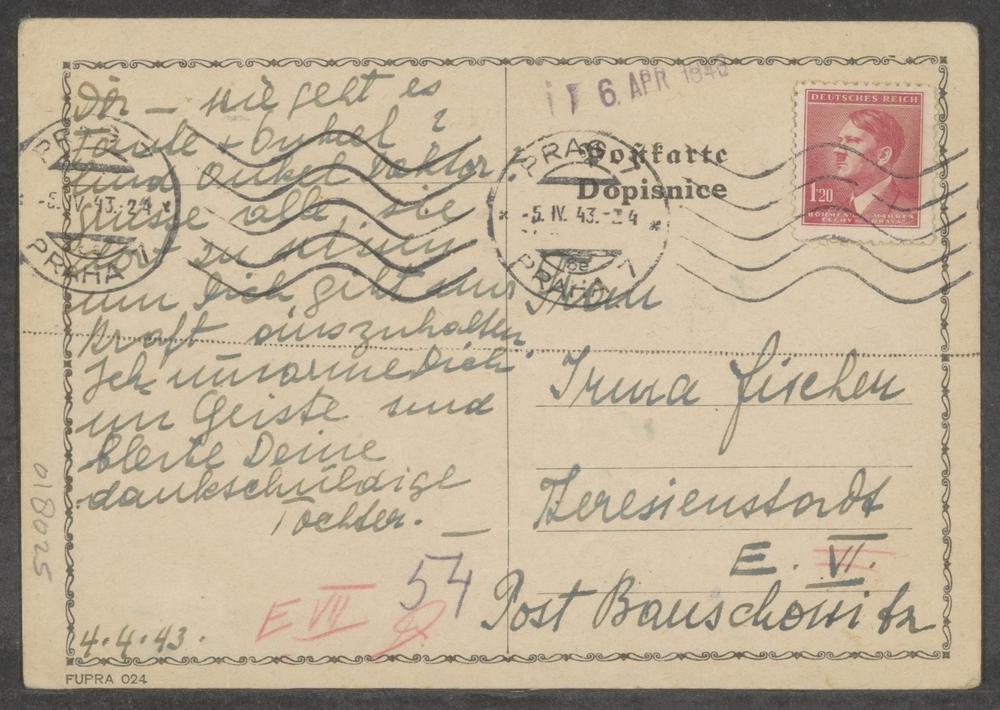 Dir – wie geht es
Tante + Onkel ?
und Onkel Doktor.
Grüsse alle, sie
zu
um Dich gibt mir
Kraft auszuhalten.
Ich umarme Dich
im Geiste und
bleibe Deine
dankschuldige
Tochter. –
4.4.43.
E VII
54
FUPRA 024
018025
6. APR 1943
PRAHA 7
-5. IV. 43.-24
PRAHA 7
PRAG 7
-5. IV. 43.-24
PRAHA 7
Postkarte
Dopisnice
DEUTSCHES REICH
1.20
BÖHMEN U. MÄHREN
ČECHY A MORAVA
Frau
Irma Fischer
Theresienstadt
E. VI.
Post Bauschowitz